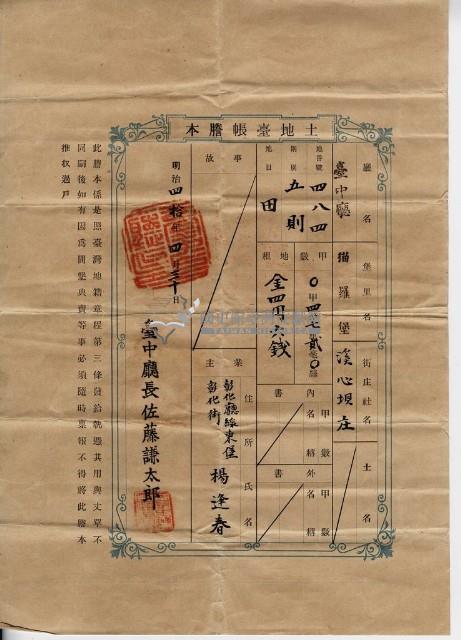 土地臺帳謄本
廳名
臺中廳
堡里名
猫羅堡
街庄社名
溪心埧庄
土名
地番號
四八四
則別
五則
地目
田
甲數
〇甲四七貳〇
地租
金四円六銭
內書
甲數
名稱
外書
甲數
名稱
事故
業主
住所
彰化廳線東堡
彰化街
氏名
楊逢春
明治四拾年四月三十日
臺中廳長佐藤謙太郎
此謄本係是照臺灣地籍章程第三條發給就過其用與丈單不
同嗣後如有因爲開墾典賣等事必須隨時稟報不得將此謄本
推収過戶